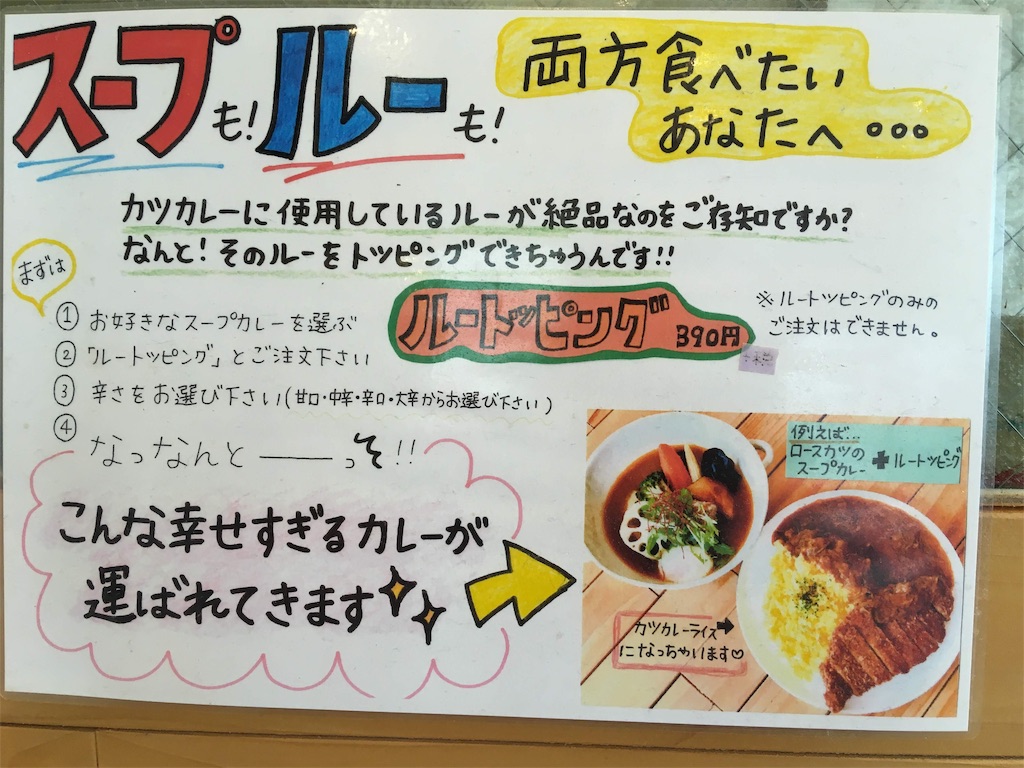 スープも!ルーも!
両方食べたい
あなたへ…
カツカレーに使用しているルーが絶品なのをご存知ですか?
なんと!そのルーをトッピングできちゃうんです!!
まずは
ルートッピング 390円
※ルートッピングのみの
ご注文はできません。
① お好きなスープカレーを選ぶ
② 「ルートッピング」とご注文下さい
③ 辛さをお選び下さい(甘口・中辛・辛口・大辛からお選び下さい)
④ なっなんと――っそ!!
こんな幸せすぎるカレーが
運ばれてきます
例えば...
ロースカツの
スープカレー+ルートッピング
カツカレーライス
になっちゃいます♡